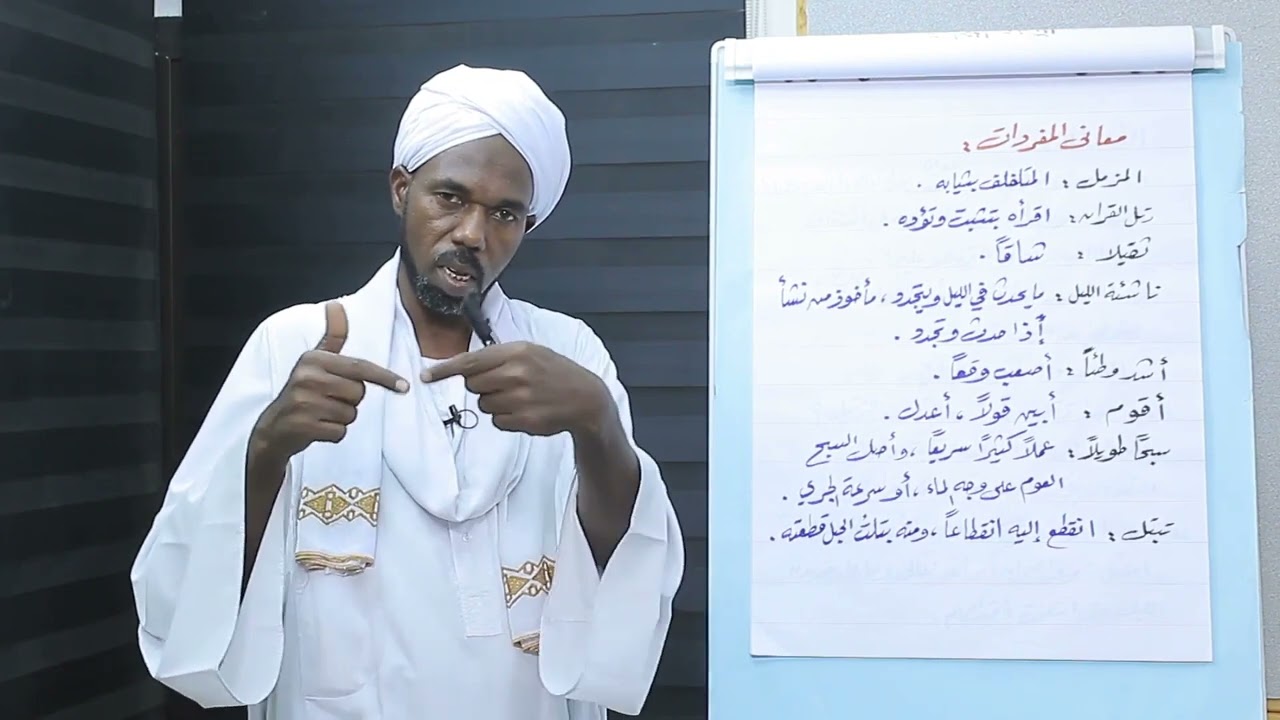 معانى المفردات :
المزمل : المتلفلف بثيابه .
رتل القران : اقرأه بتثبت وتؤده .
ثقيلا : شاقاً .
ناشئة الليل : ما يحدث في الليل ويتجدد ، مأخوذ من نشأ
إذا حدث وتجدد .
أشد وطئاً : أصعب وقعاً .
أقوم : أبين قولاً ، أعدل .
سبحًا طويلاً : عملاً كثيرًا سريعًا ، وأصل السبح
العوم على وجه الماء ، أو سرعة الجري .
تبتل : انقطع إليه انقطاعاً ، ومنه بتلت الحبل قطعته .